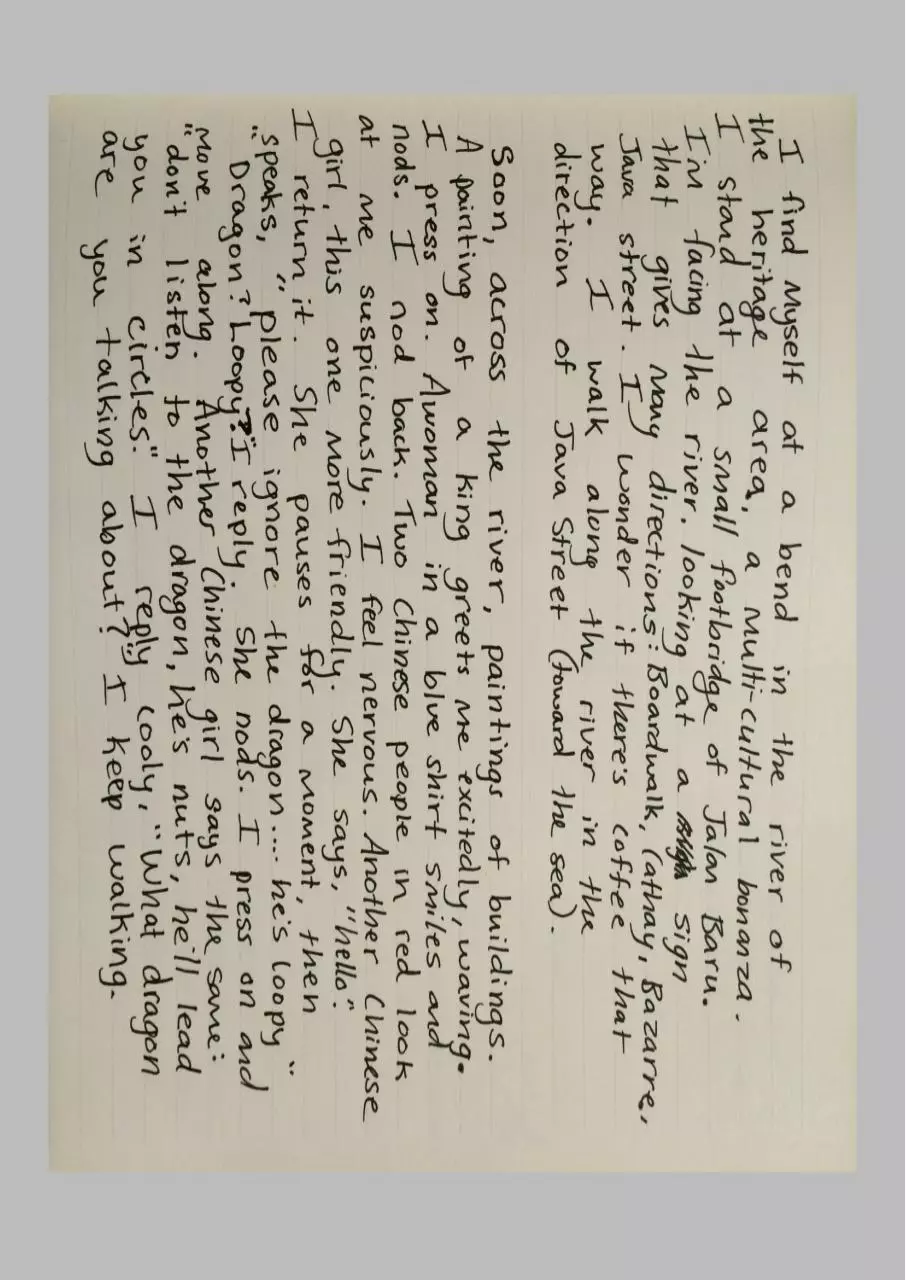 I find myself at a bend in the river of
the heritage area, a multi-cultural bonanza.
I stand at a small footbridge of Jalan Baru.
I'm facing the river. looking at a sign
that gives many directions: Boardwalk, Cathay, Bazarre,
Java street. I wonder if there's coffee that
way. I walk along the river in the
direction of Java Street (toward the sea).
Soon, across the river, paintings of buildings.
A painting of a king greets me excitedly, waving.
I press on. A woman in a blue shirt smiles and
nods. I nod back. Two Chinese people in red look
at me suspiciously. I feel nervous. Another Chinese
girl, this one more friendly. She says, "hello".
I return it. She pauses for a moment, then
speaks, "please ignore the dragon.... he's loopy"
"Dragon? Loopy?" I reply. She nods. I press on and
move along. Another Chinese girl says the same:
"don't listen to the dragon, he's nuts, he'll lead
you in circles." I reply cooly, "What dragon
are you talking about? I keep walking.